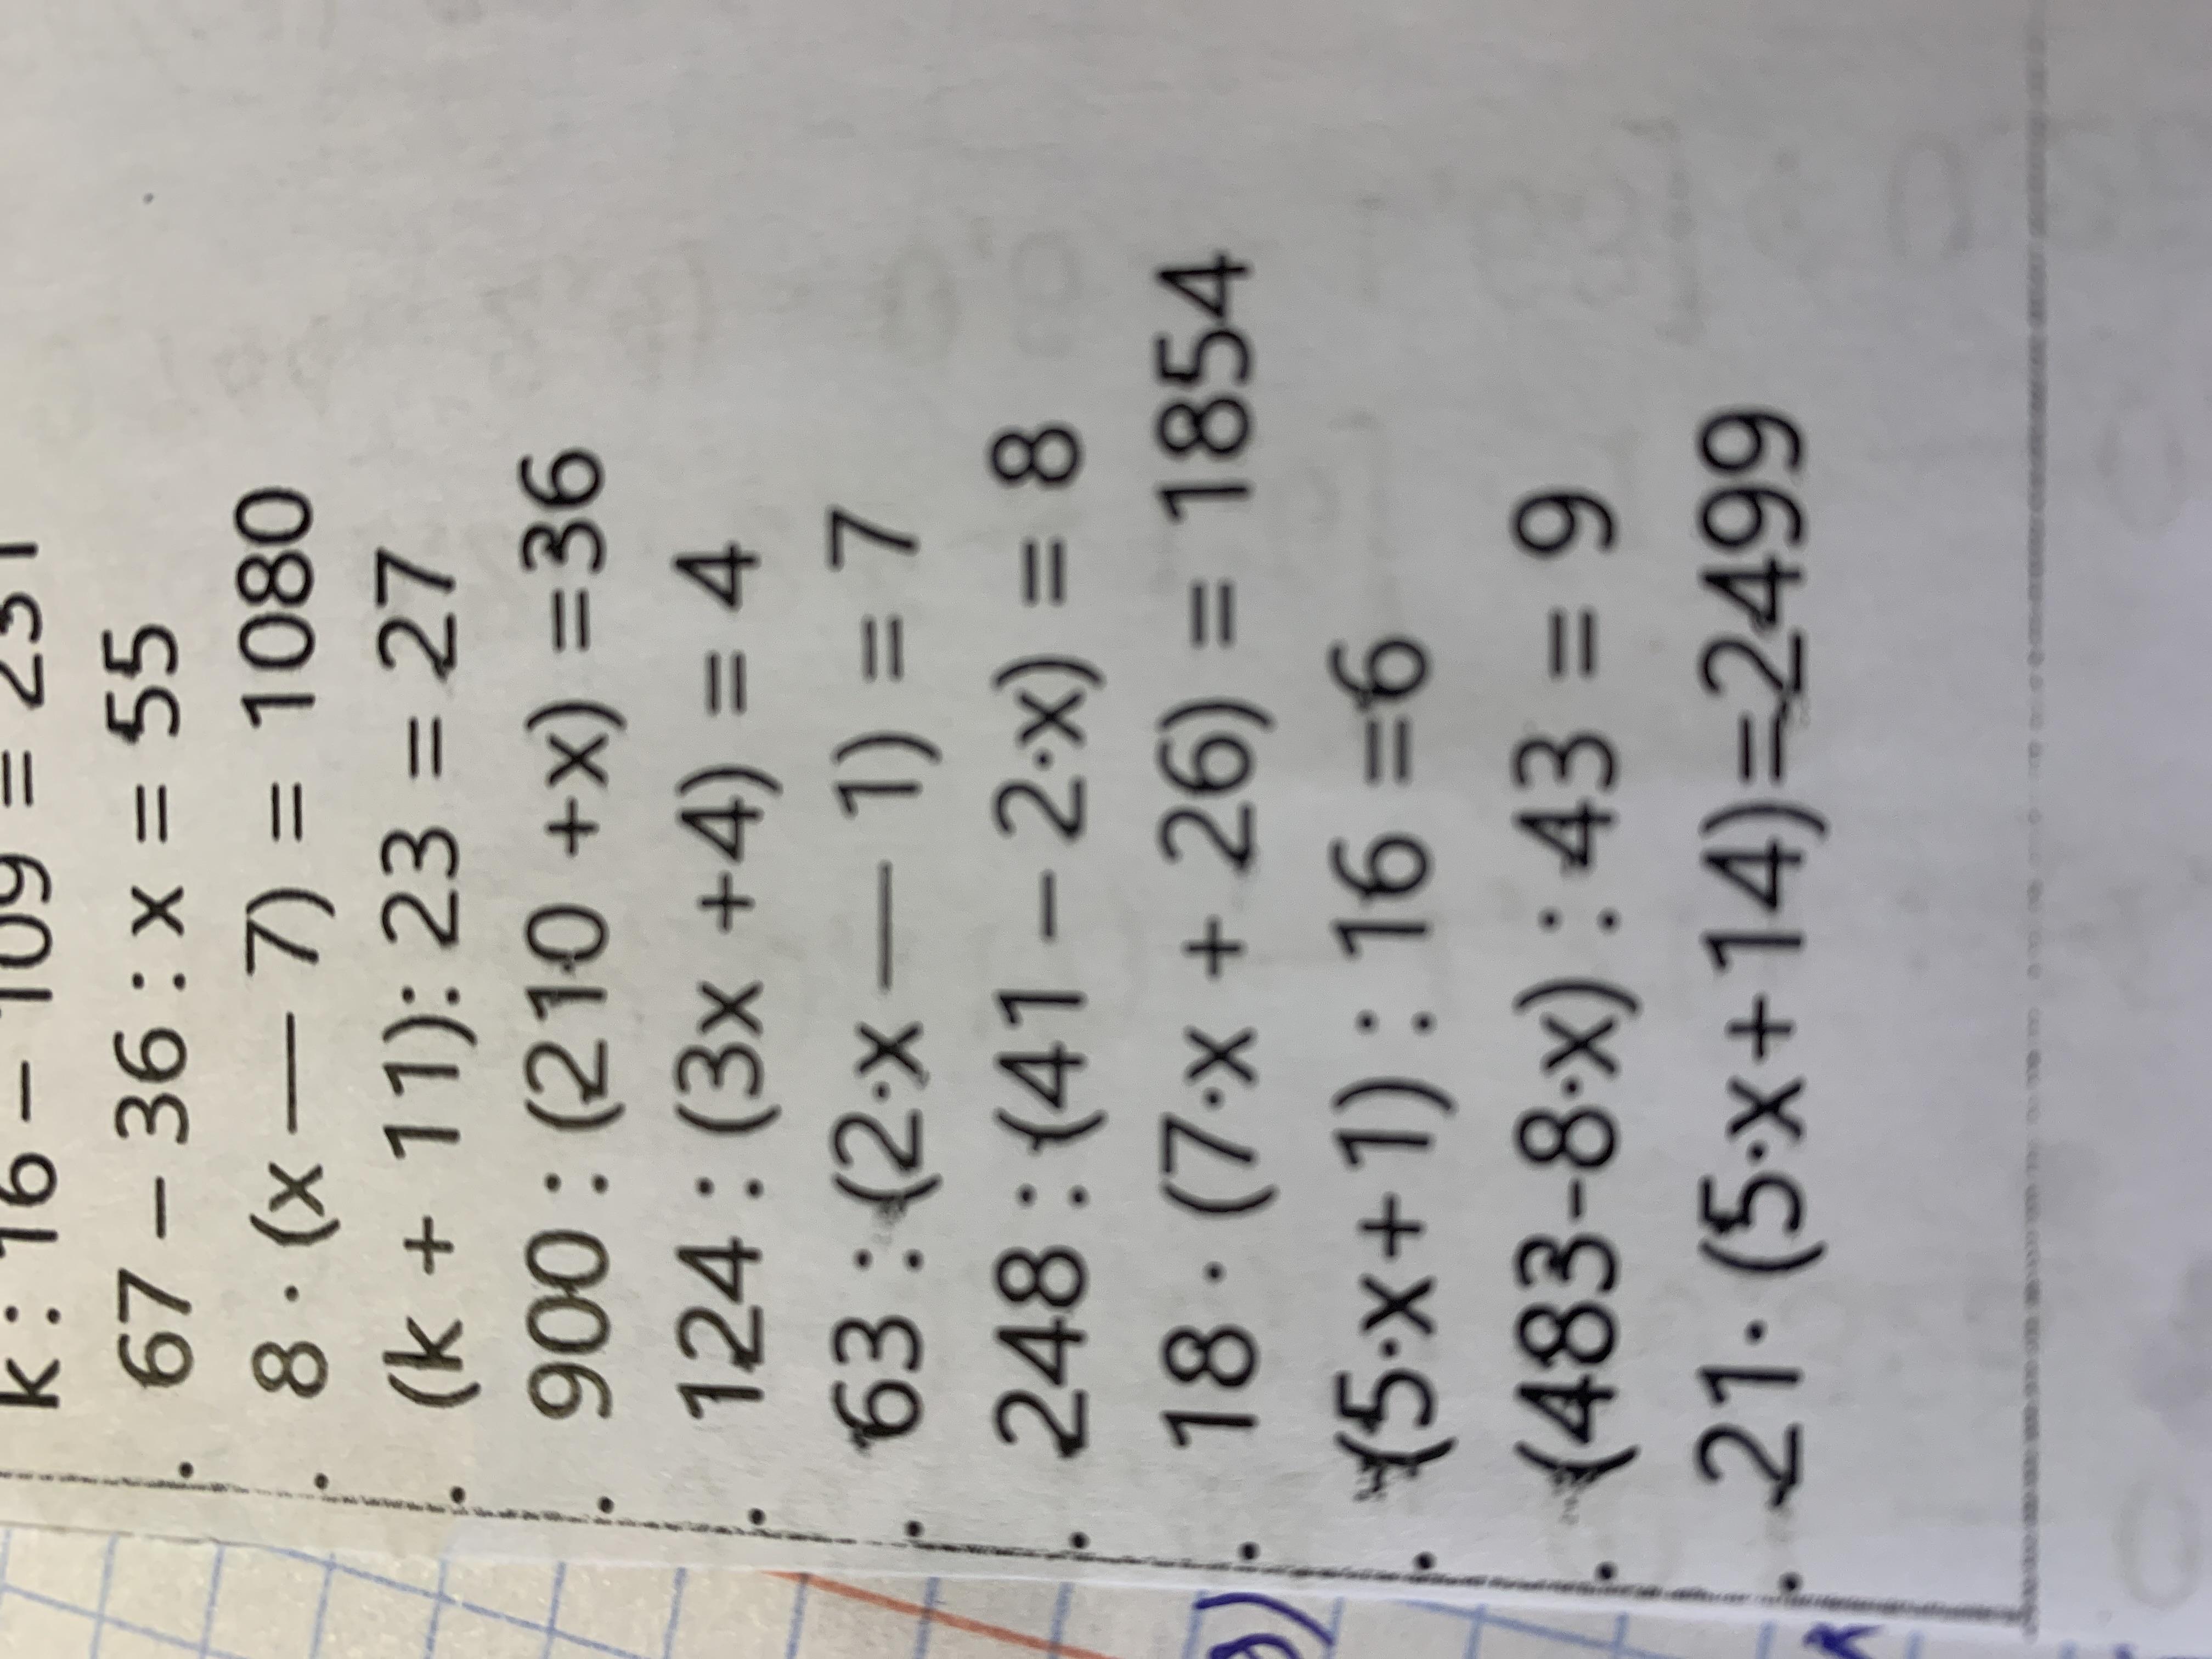 k : 16 – 109 = 231
67 – 36 : x = 55
8 · (x — 7) = 1080
(k + 11): 23 = 27
900 : (210 +x) =36
124 : (3x +4) = 4
63 : (2·x — 1) = 7
248 : (41 – 2·x) = 8
18 · (7·x + 26) = 1854
(5·x+1) : 16 =6
(483-8·x) : 43 = 9
21· (5·x+14)=2499